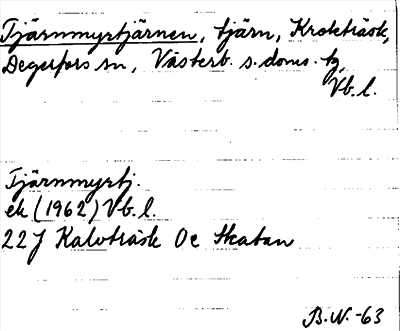 Tjärnmyrtjärnen, tjärn, Krokträsk,
Degerfors sn, Västerb. s. doms. tg,
Vb. l.
Tjärnmyrtj.
ek (1962) Vb. l.
22J Kalvträsk 0c Skatan
B.N. -63